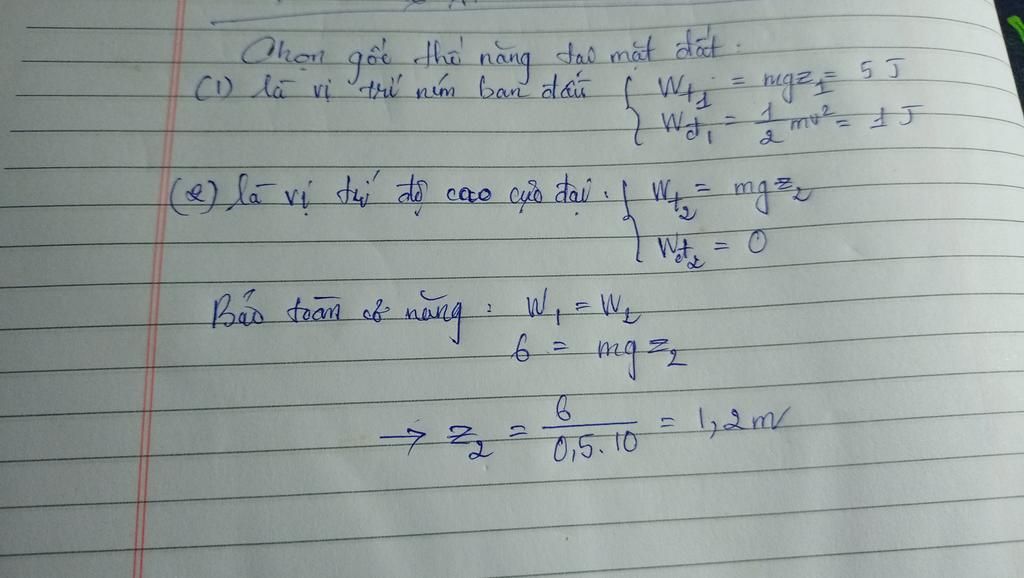 Chọn gốc thế năng tại mặt đất.
(1) là vị trí ném ban đầu { Wt1 = mgz1 = 5 J
Wđ1 = 1/2 mv² = 1 J
(2) là vị trí độ cao cực đại. { Wt2 = mgz2
Wđ2 = 0
Bảo toàn cơ năng : W1 = W2
6 = mgz2
→ z2 = 6/0,5.10 = 1,2 m